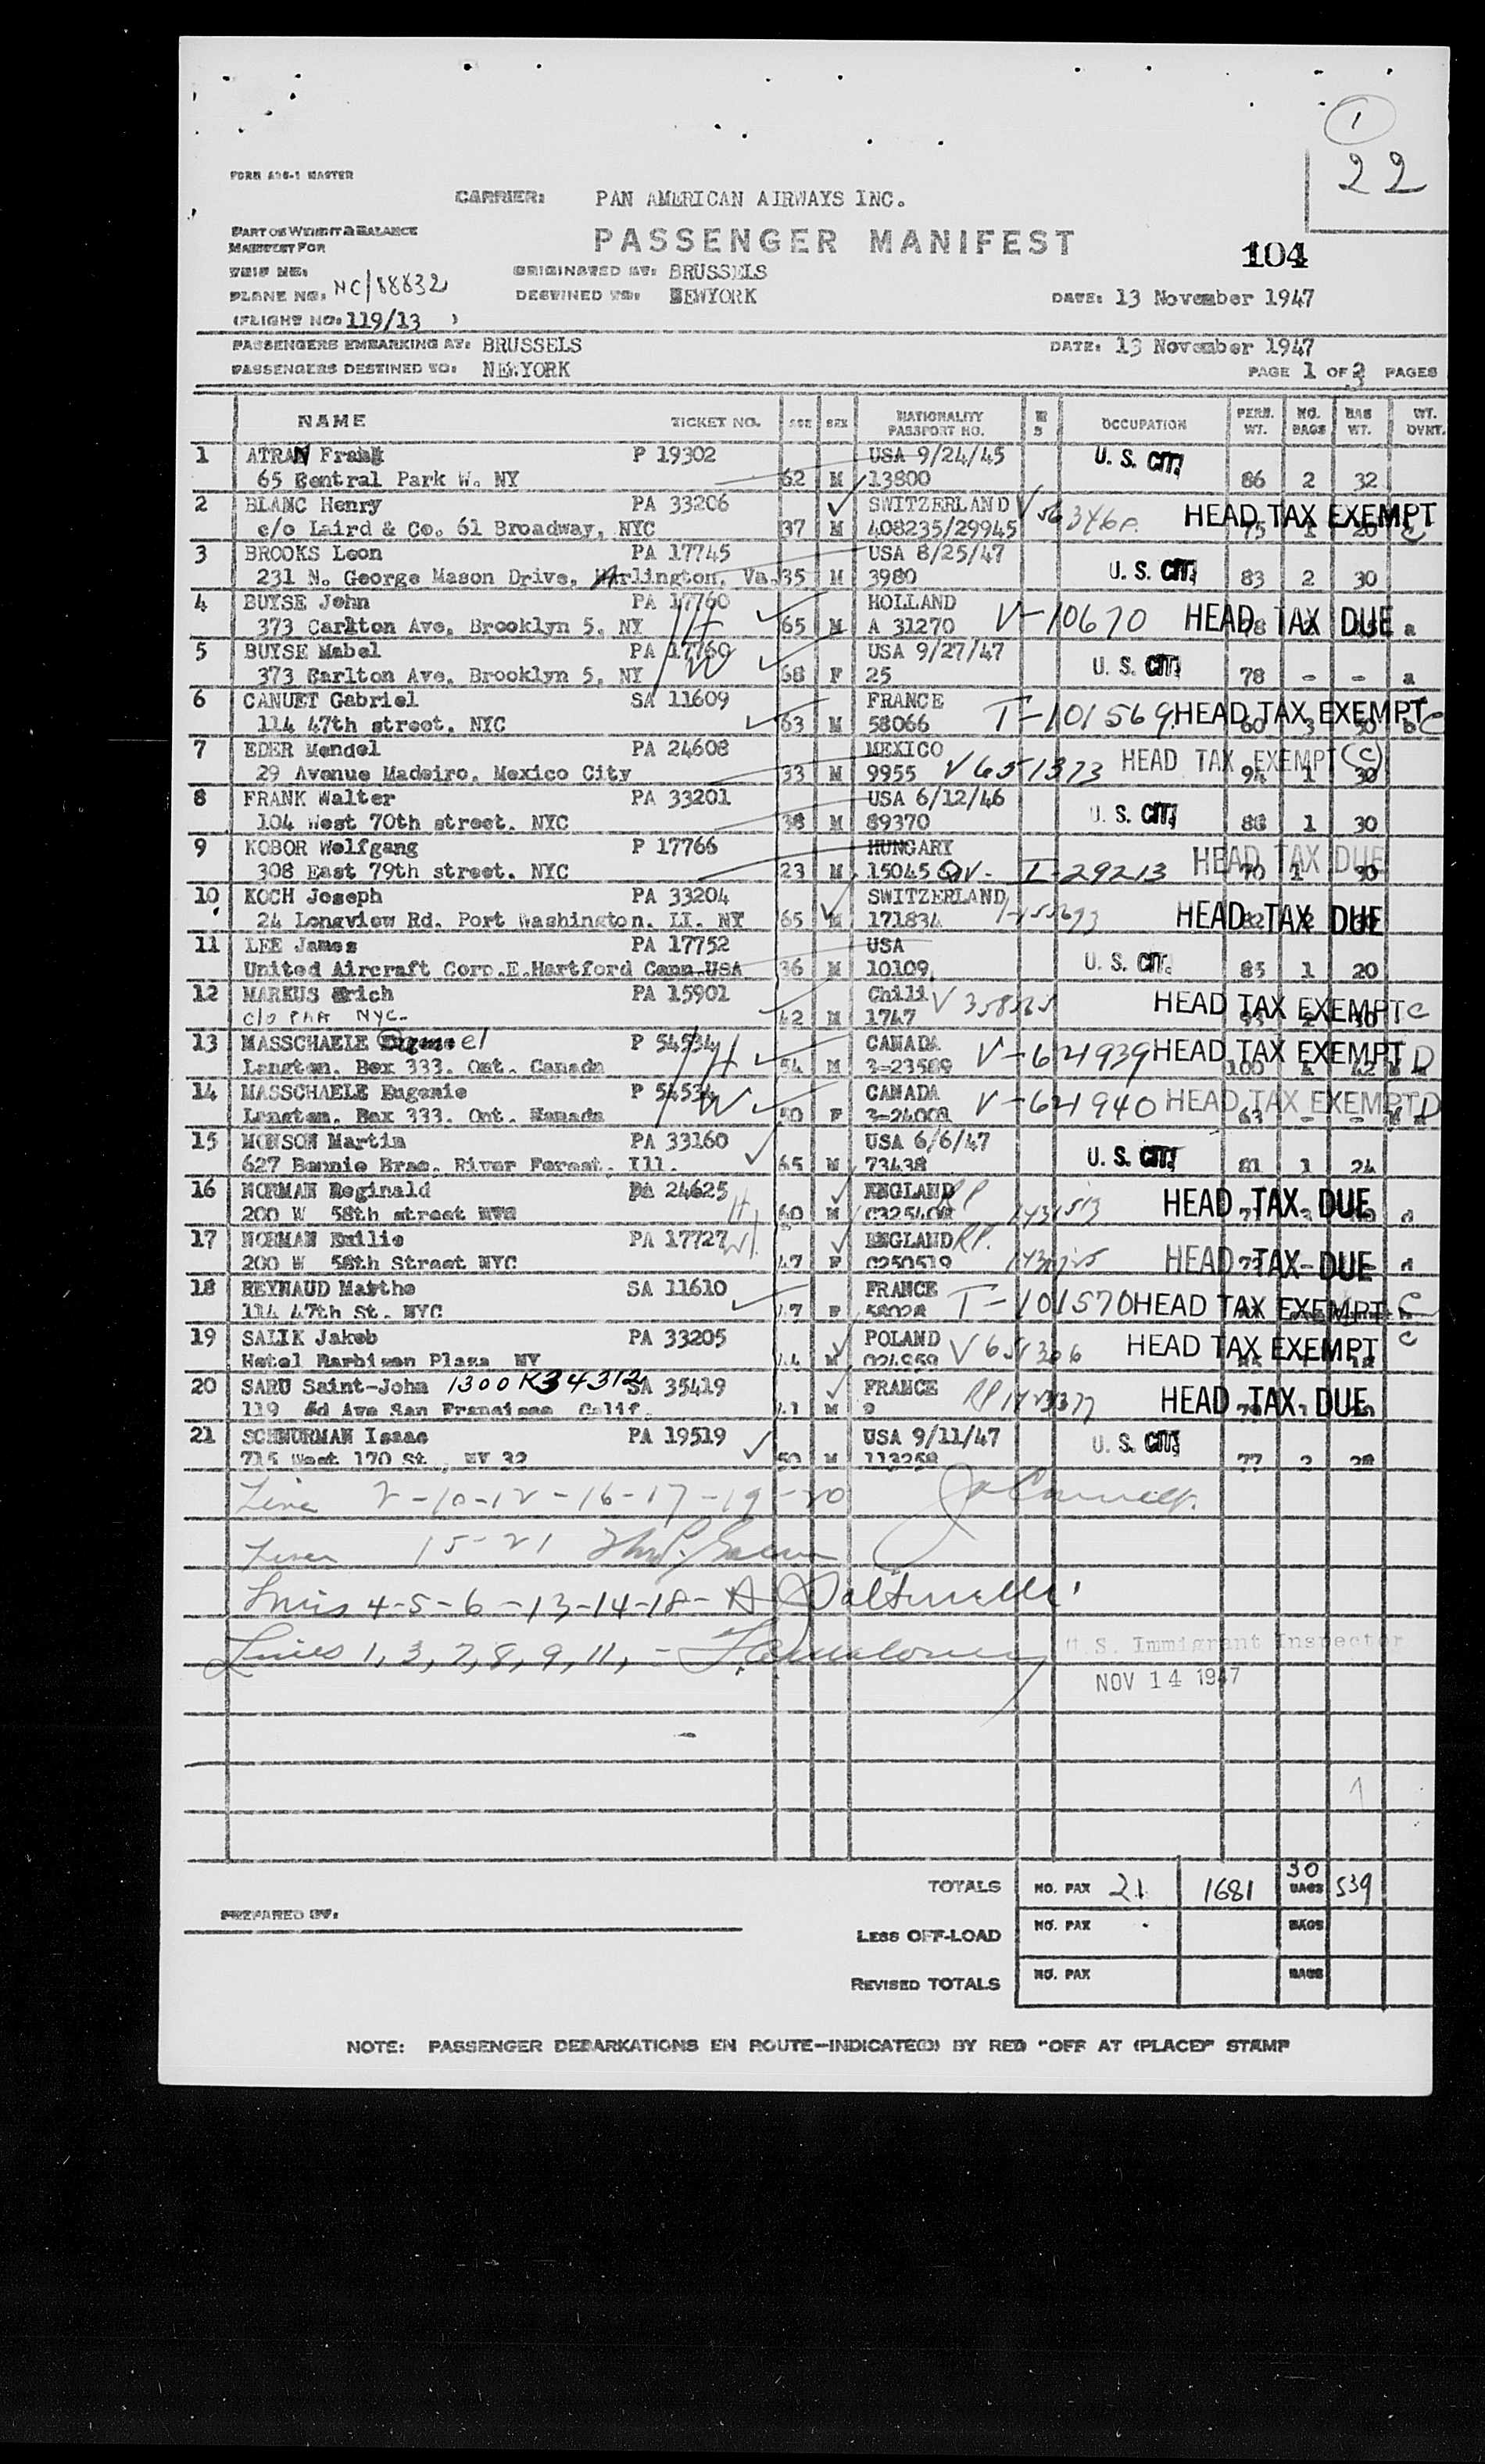 1
22
FORM A26-1 MASTER
CARRIER: PAN AMERICAN AIRWAYS INC.
PART OF WEIGHT & BALANCE
MANIFEST FOR
PASSENGER MANIFEST
104
TRIP NO.
ORIGINATED AT: BRUSSELS
PLANE NO. NC/88832
DESTINED TO: NEWYORK
DATE: 13 November 1947
(FLIGHT NO: 119/13 )
PASSENGERS EMBARKING AT: BRUSSELS
DATE: 13 November 1947
PASSENGERS DESTINED TO: NEWYORK
PAGE 1 OF 3 PAGES
NAME TICKET NO. AGE SEX NATIONALITY PASSPORT NO. M S OCCUPATION PERS. WT. NO. BAGS BAG WT. WT. OVNT.
1 ATRAN Frank P 19302 USA 9/24/45 U. S. CIT.
65 Central Park W. NY 62 M 13800 86 2 32
2 BLANC Henry PA 33206 SWITZERLAND HEAD TAX EXEMPT
c/o Laird & Co. 61 Broadway, NYC 37 M 408235/29945 75 1 20 C
3 BROOKS Leon PA 17745 USA 8/25/47 U. S. CIT.
231 N. George Mason Drive, Arlington, Va. 35 M 3980 83 2 30
4 BUYSE John PA 17760 H HOLLAND V-10670 HEAD TAX DUE
373 Carlton Ave. Brooklyn 5, NY 65 M A 31270 a
5 BUYSE Mabel PA 17760 W USA 9/27/47 U. S. CIT.
373 Carlton Ave. Brooklyn 5, NY 68 F 25 78 - - a
6 CANUET Gabriel SA 11609 FRANCE T-101569 HEAD TAX EXEMPT C
114 47th street. NYC 63 M 58066 60 3 50 b
7 EDER Mendel PA 24608 MEXICO HEAD TAX EXEMPT (C)
29 Avenue Madeiro, Mexico City 33 M 9955 V651373 94 1 30
8 FRANK Walter PA 33201 USA 6/12/46 U. S. CIT.
104 West 70th street. NYC 38 M 89370 88 1 30
9 KOBOR Wolfgang P 17766 HUNGARY HEAD TAX DUE
308 East 79th street. NYC 23 M 15045 QV- I-29213 70 1 30
10 KOCH Joseph PA 33204 SWITZERLAND HEAD TAX DUE
24 Longview Rd. Port Washington. LI. NY 65 M 171834 82 2
11 LEE James PA 17752 USA U. S. CIT.
United Aircraft Corp.E.Hartford Conn.USA 36 M 10109 85 1 20
12 MARKUS Erich PA 15901 Chili HEAD TAX EXEMPT C
c/o PAA NYC. 42 M 1747
13 MASSCHAELE P 54534 H CANADA V-621939 HEAD TAX EXEMPT D
Langton. Box 333. Ont. Canada 54 M 3=23589 100 42
14 MASSCHAELE Eugenie P 54534 W CANADA V-621940 HEAD TAX EXEMPT D
Langton. Box 333. Ont. Kanada 50 F 3=24008 63 - -
15 MONSON Martin PA 33160 USA 6/6/47 U. S. CIT.
627 Bonnie Brae. River Forest. Ill. 65 M 73438 81 1 24
16 NORMAN Reginald PA 24625 H ENGLAND RP HEAD TAX DUE
200 W 58th street NYC 60 M C325408 d
17 NORMAN Emilie PA 17727 W ENGLAND RP. HEAD TAX DUE
200 W 58th Street NYC 47 F C250519 d
18 REYNAUD Marthe SA 11610 FRANCE T-101570 HEAD TAX EXEMPT C
114 47th St. NYC 47 F 58028
19 SALIK Jakob PA 33205 POLAND HEAD TAX EXEMPT C
Hotel Barbizon Plaza NY 44 M 024959
20 SARU Saint-John 1300 K34312 SA 35419 FRANCE HEAD TAX DUE
119 Ave San Francisco Calif. 41 M 9
21 SCHNURMAN Isaac PA 19519 USA 9/11/47 U. S. CIT.
715 West 170 St., NY 32 50 M 113258 77 2 28
Line 2-10-12-16-17-19-20
Lines 15-21
Lines 4-5-6-13-14-18-
Lines 1, 3, 7, 8, 9, 11, -
U. S. Immigrant Inspector
NOV 14 1947
TOTALS NO. PAX 21 1681 30 BAGS 539
PREPARED BY:
LESS OFF-LOAD NO. PAX BAGS
REVISED TOTALS NO. PAX BAGS
NOTE: PASSENGER DEBARKATIONS EN ROUTE-INDICATE(D) BY RED "OFF AT (PLACE)" STAMP